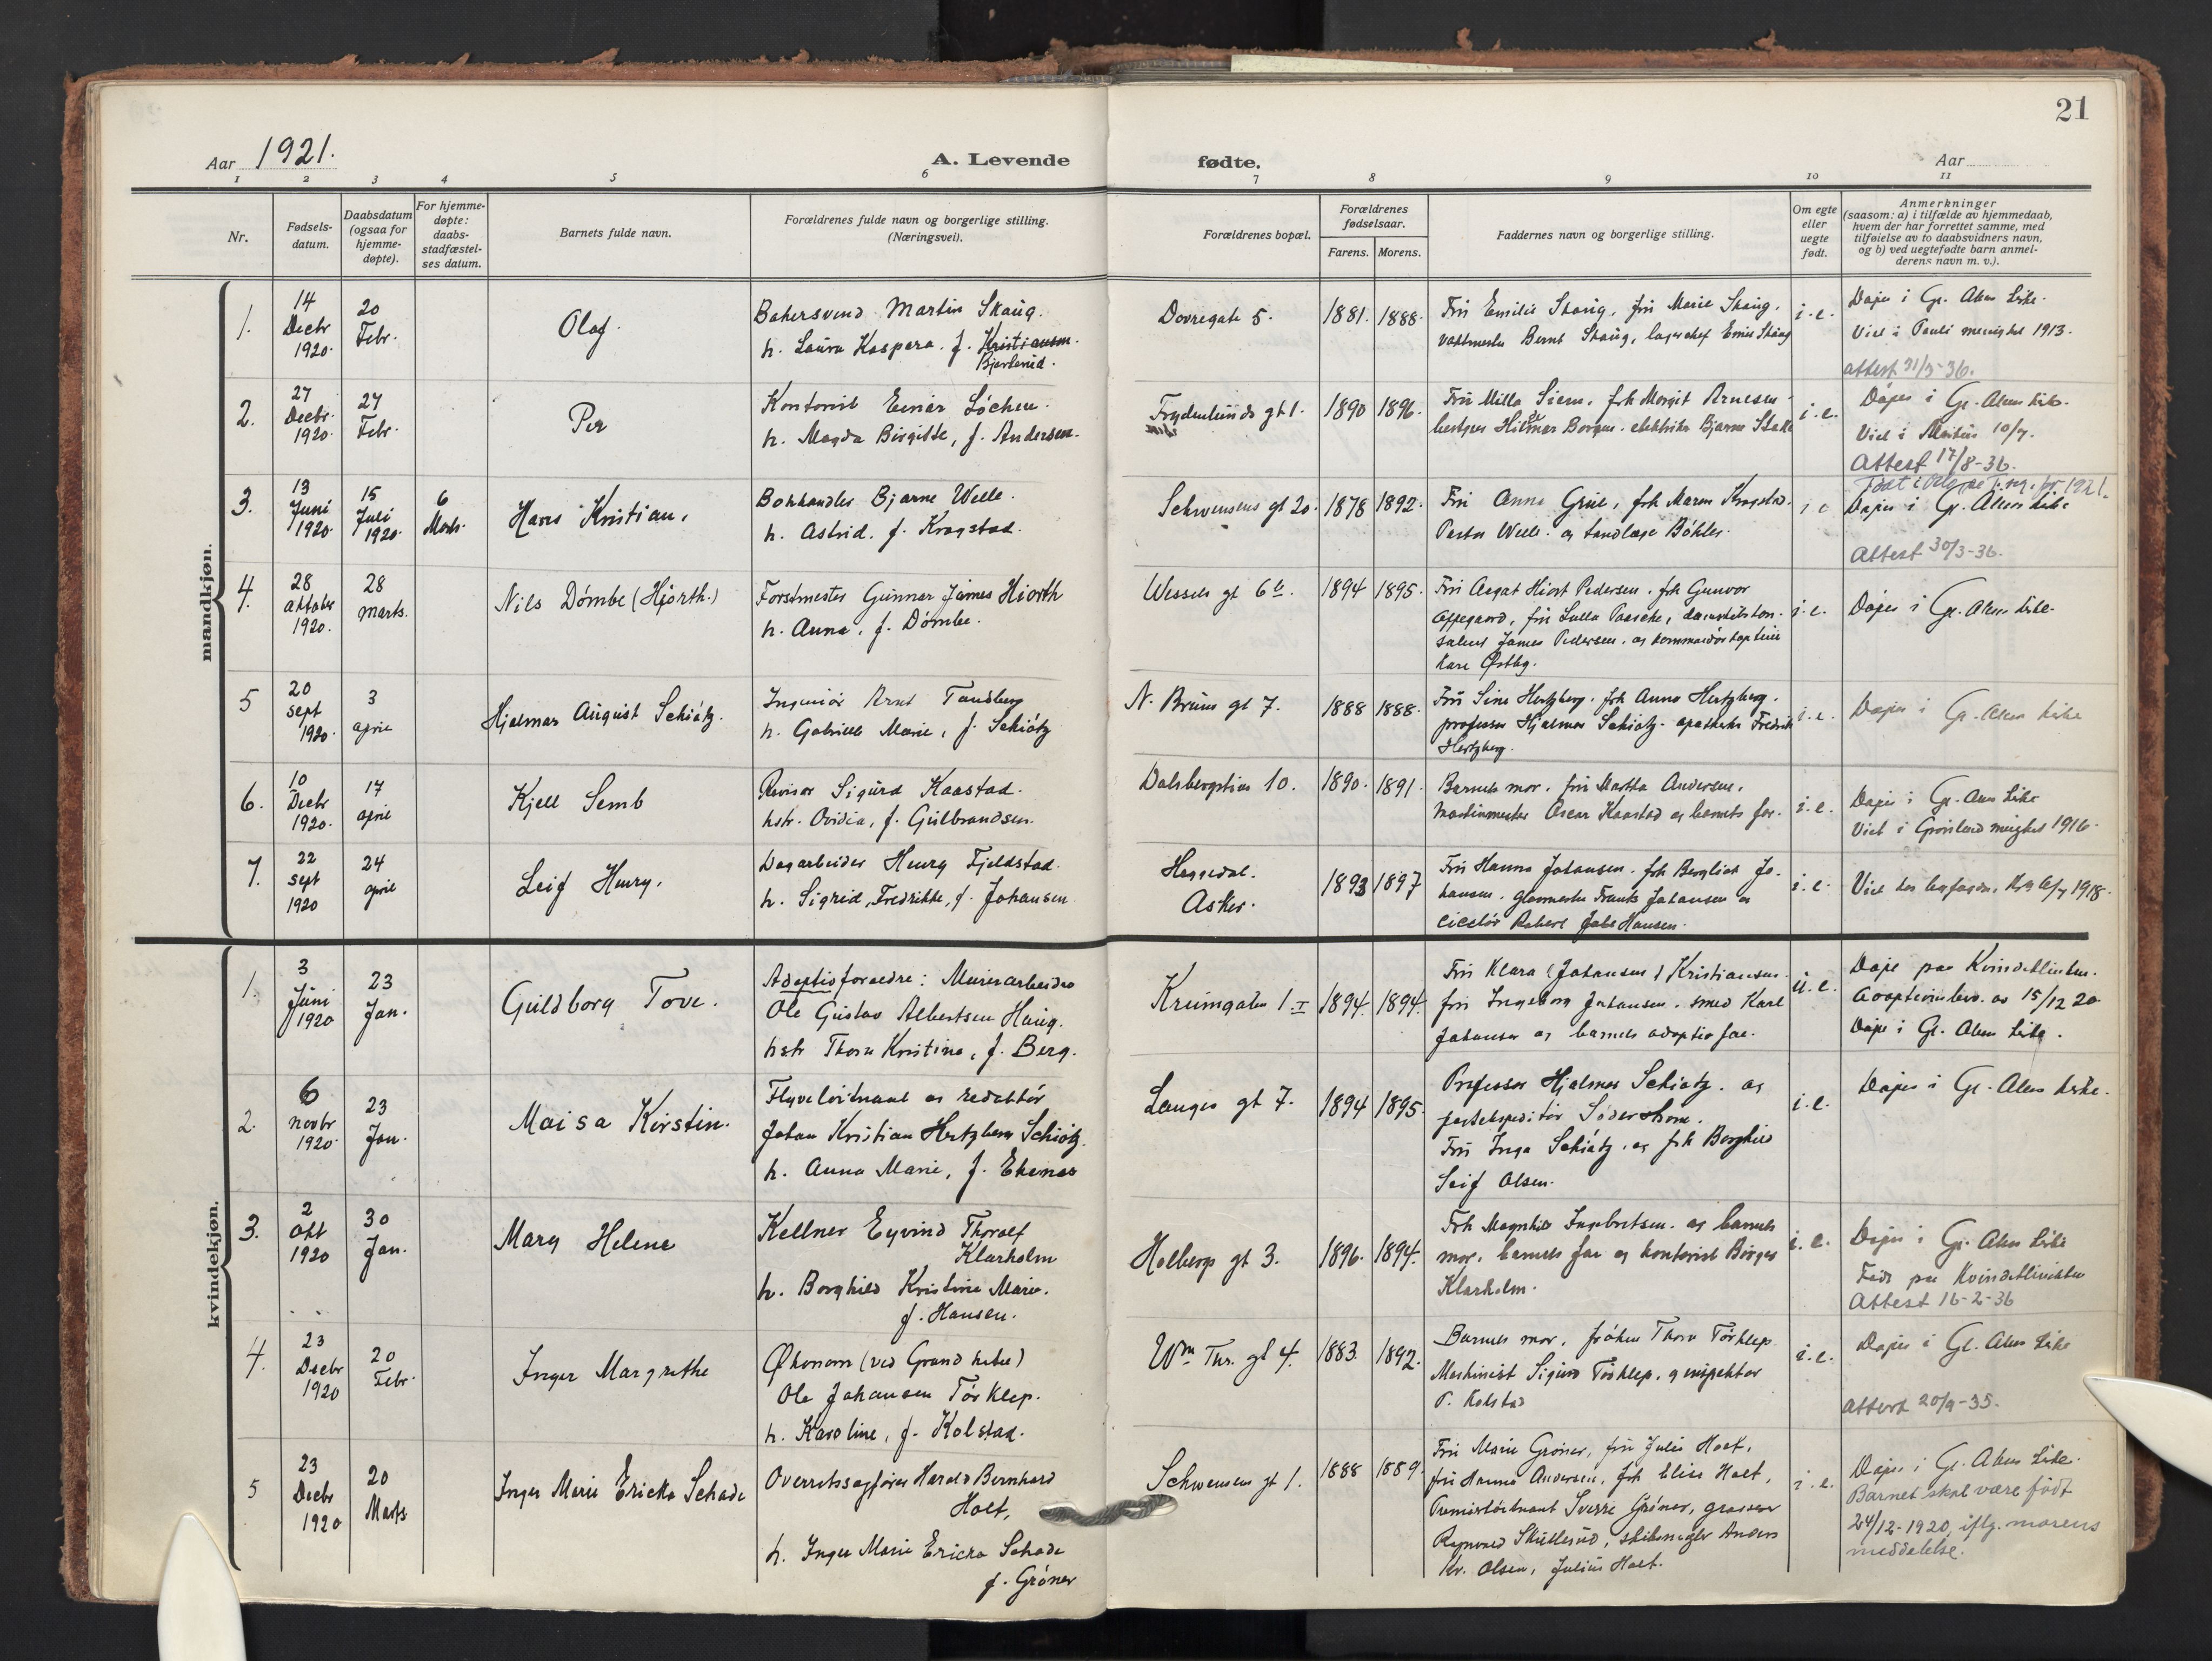 21
Aar 1921.
A. Levende fødte.
Aar
1 2 3 4 5 6 7 8 9 10 11
Nr.
Fødsels-
datum.
Daabsdatum
(ogsaa for
hjemme-
døpte).
For hjemme-
døpte:
daabs-
stadfæstel-
ses datum.
Barnets fulde navn.
Forældrenes fulde navn og borgerlige stilling.
(Næringsvei).
Forældrenes bopæl.
Forældrenes
fødselsaar.
Farens. Morens.
Faddernes navn og borgerlige stilling.
Om egte
eller
uegte
født.
Anmerkninger
(saasom: a) i tilfælde av hjemmedaab,
hvem der har forrettet samme, med
tilføielse av to daabsvidners navn,
og b) ved uegtefødte barn anmel-
derens navn m. v.).
mandkjøn.
1.
14
Decbr
1920.
20
Febr.
Olaf.
Bakersvend Martin Skaug.
h. Laura Kaspara. f. Kristiansen.
Bjerkerud.
Dovregate 5.
1881. 1888.
Fru Emilie Skaug, fru Marie Skaug,
vaktmester Bernt Skaug, lagerchef Emil Skaug
i. e.
Døpt i Gl. Akers kirke.
Viet i Pauli menighet 1913.
attest 31/3-36.
2.
27
Decbr.
1920.
27
Febr.
Per
Kontorist Einar Löchen.
h. Magda Birgitte, f. Andersen.
Frydenlunds gt 1.
1890 1896.
Fru Milla Siem, frk Margit Arnesen
Hilmar Borgen. elektriker Bjarne
i. e.
Døpt i Gl. Akers kirke.
Viet i 10/7.
Attest 17/8-36.
3.
13
Juni
1920.
15
Juli
1920.
6
Marts.
Hans Kristian,
Bokhandler Bjarne Welle.
h. Astrid. f. Kragstad.
Schwensens gt 20.
1878 1892.
Fru Anna Grue, frk Maren Kragstad.
Pastor Welle. og tandlæge Böhler.
i e
1921.
Døpt i Gl. Akers kirke
Attest 30/3-36.
4.
28
oktober
1920.
28
marts.
Nils Dömbe (Hjorth.)
Forstmester Gunnar James Hiorth
h. Anna, f. Dömbe.
Wessels gt 6 b.
1894 1895.
Fru Aagot Hiort Pedersen, frk Gunvor
Oppegaard, fru Lulla Paasche,
James Pedersen. og kommandörkaptein
Kare Østby.
i. e.
Døpt i Gl. Akers kirke.
5
20
sept
1920.
3
april
Hjalmar August Schiötz.
Ingeniör Arnt Tandberg
h. Gabrielle Marie, f. Schiötz
N. Bruns gt 7.
1888 1888.
Fru Sina Hertzberg. frk Anna Hertzberg.
professor Hjalmar Schiötz. apotheker Fredrik
Hertzberg.
i. e.
Døpt i Gl. Akers kirke
6.
10
Decbr
1920.
17
april
Kjell Semb
Revisor Sigurd Kaastad.
hstr. Ovidia, f. Gulbrandsen.
Dalsbergstien 10.
1890. 1891.
Barnets mor, fru Martha Andersen,
Maskinmester Oscar Kaastad og barnets far.
i. e.
Døpt i Gl. Akers kirke
Viet i Grönland menighet 1916.
7.
22
sept
1920
24
april
Leif Henry.
Dagarbeider Henry Fjeldstad.
h. Sigrid, Fredrikke, f. Johansen
Heggedal.
Asker.
1893 1897
Fru Hanna Johansen. frk Bergliot Jo-
hansen. glasmester Frants Johansen og
Robert Johs Hansen.
i. e.
Viet hos byfogden, Kra 1918.
kvindekjøn.
1.
3
Juni
1920
23
Jan.
Guldborg Tove.
Adoptivforældre: Murerarbeider
Ole Gustav Albertsen Haug.
hstr Thora Kristina, f. Berg.
Krumgaten 1 I
1894. 1894.
Fru Klara (Johansen) Kristiansen.
fru Ingeborg Johansen. smed Karl
Johansen og barnets adoptivfar.
u. e.
paa Kvindeklinken.
Adoptionsbev. av 15/12 20
Døpt i Gl. Akers kirke.
2.
6
novbr
1920.
23
Jan.
Maisa Kirstin.
Flyvelöitnant og redaktör
Johan Kristian Hertzberg Schiötz.
h. Anna Marie, f. Ekenes
Langes gt 7.
1894 1895.
Professor Hjalmar Schiötz. og
Söderstrom.
Fru Inga Schiötz. og frk Borghild
Leif Olsen.
i. e.
Døpt i Gl. Akers kirke.
3.
2
okt
1920
30
Jan.
Mary Helene
Kellner Eyvind Thoralf
Klarholm
h. Borghild Kristine Marie.
f. Hansen.
Holbergs gt 3.
1896. 1894.
Frk Magnhild Ingebretsen. og barnets
mor, barnets far og kontorist Börge
Klarholm.
i. e.
Døpt i Gl. Akers kirke
Født paa Kvindeklinikken
Attest 16-2-36
4.
23
Decbr
1920
20
Febr.
Inger Margrethe
Økonom (ved Grand hotel)
Ole Johansen Törklep.
h. Karoline, f. Kolstad.
Wm Thr. gt 4.
1883. 1892.
Barnets mor, fröken Thora Törklep
Maskinist Sigurd Törklep. og inspektör
P. Kolstad
i. e.
Døpt i Gl. Akers kirke
Attest 20/9-35.
5
23
Decbr
1920
20
Marts
Inger Marie Ericka Schade
Overretssagförer Harald Bernhard
Holt,
h. Inger Marie Ericka Schade
f. Gröner
Schwensens gt 1.
1888 1889.
Fru Marie Gröner, fru Julie Holt,
fru Hanna Andersen, frk Elise Holt,
Premierlöitnant Sverre Gröner, grosserer
Ragnvald Skullerud, skibsmegler Anders
Kr. Olsen, Julius Holt.
i. e.
Døpt i Gl. Akers kirke.
Barnet skal være født
24/12-1920, iflg. morens
meddelelse.